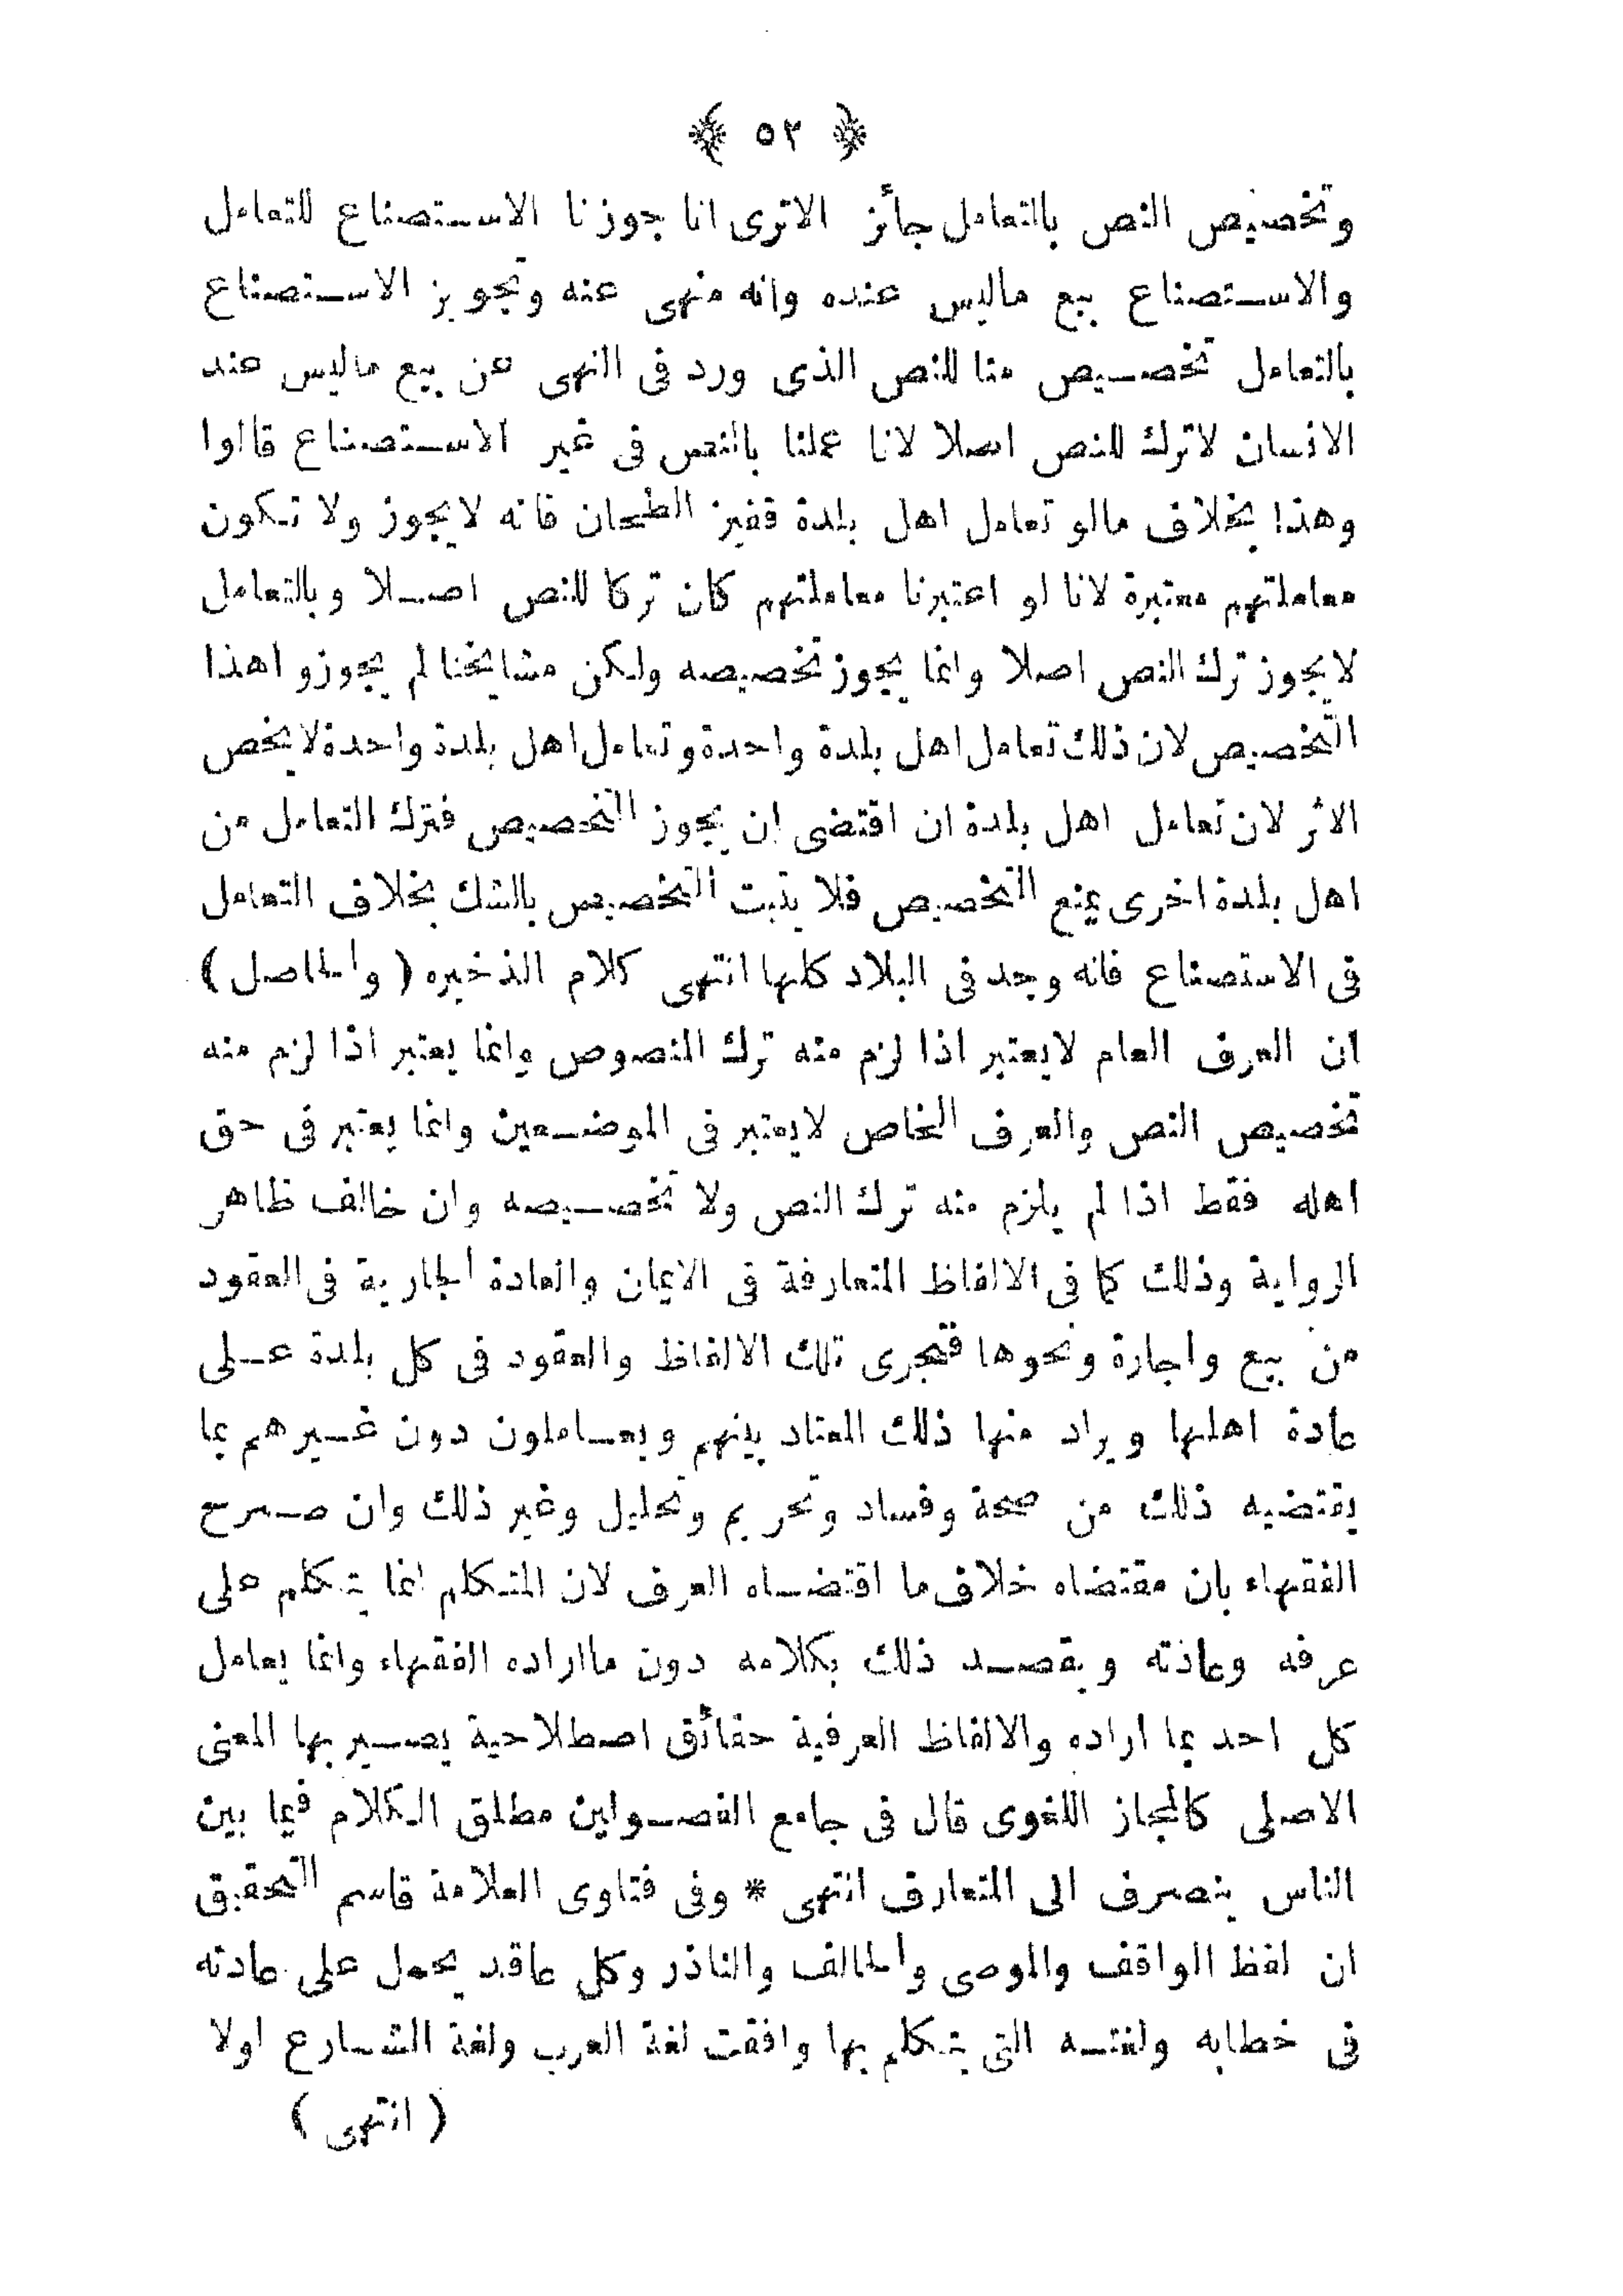 ﴿ ٥٢ ﴾
وتخصيص النص بالتعامل جائز الاترى انا جوزنا الاستصناع للتعامل
والاستصناع بيع ماليس عنده وانه منهى عنه وتجويز الاستصناع
بالتعامل تخصيص منا للنص الذى ورد فى النهى عن بيع ماليس عند
الانسان لاترك للنص اصلا لانا عملنا بالنص فى غير الاستصناع قالوا
وهذا بخلاف مالو تعامل اهل بلدة قفيز الطحان فانه لايجوز ولا تكون
معاملتهم معتبرة لانا لو اعتبرنا معاملتهم كان تركا للنص اصلا وبالتعامل
لايجوز ترك النص اصلا وانما يجوز تخصيصه ولكن مشايخنا لم يجوزوا هذا
التخصيص لان ذلك تعامل اهل بلدة واحدة وتعامل اهل بلدة واحدة لايخص
الاثر لان تعامل اهل بلدة ان اقتضى ان يجوز التخصيص فترك التعامل من
اهل بلدة اخرى يمنع التخصيص فلا يثبت التخصيص بالشك بخلاف التعامل
فى الاستصناع فانه وجد فى البلاد كلها انتهى كلام الذخيره ( والحاصل )
ان العرف العام لايعتبر اذا لزم منه ترك المنصوص وانما يعتبر اذا لزم منه
تخصيص النص والعرف الخاص لايعتبر فى الموضعين وانما يعتبر فى حق
اهله فقط اذا لم يلزم منه ترك النص ولا تخصيصه وان خالف ظاهر
الرواية وذلك كما فى الالفاظ المتعارفة فى الايمان والعادة الجارية فى العقود
من بيع واجارة ونحوها فتجرى تلك الالفاظ والعقود فى كل بلدة على
عادة اهلها ويراد منها ذلك المعتاد بينهم ويعاملون دون غيرهم بما
يقتضيه ذلك من صحة وفساد وتحريم وتحليل وغير ذلك وان صرح
الفقهاء بان مقتضاه خلاف ما اقتضاه العرف لان المتكلم انما يتكلم على
عرفه وعادته ويقصد ذلك بكلامه دون مااراده الفقهاء وانما يعامل
كل احد بما اراده والالفاظ العرفية حقائق اصطلاحية يصير بها المعنى
الاصلى كالمجاز اللغوى قال فى جامع الفصولين مطلق الكلام فيما بين
الناس ينصرف الى المتعارف انتهى * وفى فتاوى العلامة قاسم التحقيق
ان لفظ الواقف والموصى والحالف والناذر وكل عاقد يحمل على عادته
فى خطابه ولغته التى يتكلم بها وافقت لغة العرب ولغة الشارع اولا
( انتهى )